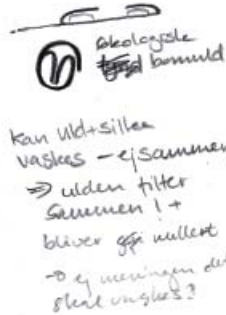 økologiske
bomuld
kan uld+silke
vaskes - ej sammen
⇒ ulden filter
sammen! +
bliver nulleret
→ ej meningen de
skal vaskes?